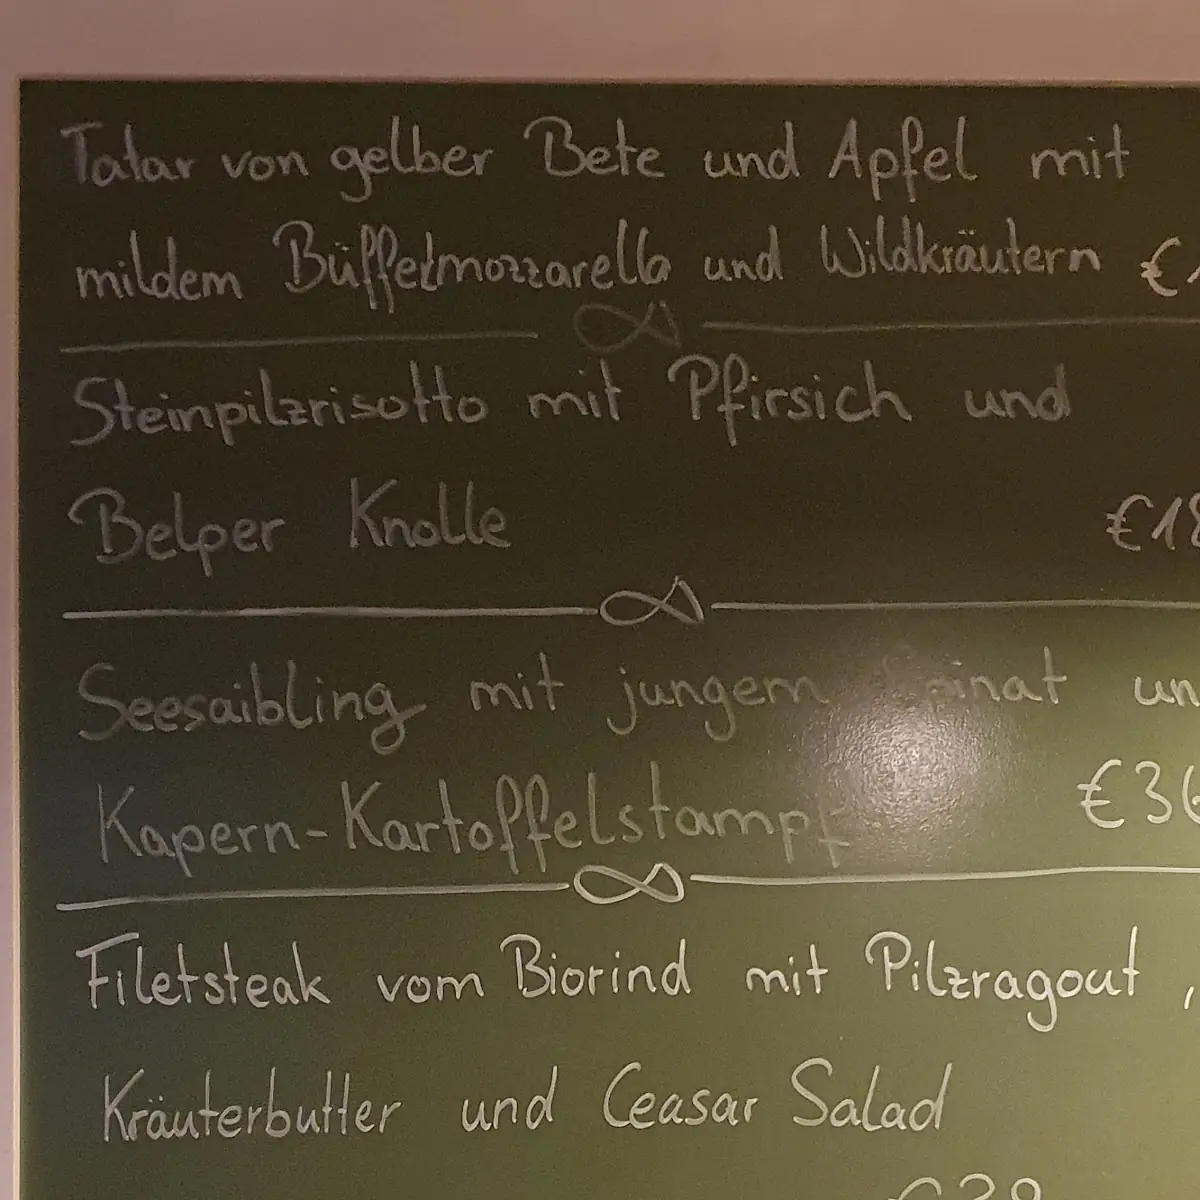 Tatar von gelber Bete und Apfel mit
mildem Büffelmozzarella und Wildkräutern €1
Steinpilzrisotto mit Pfirsich und
Belper Knolle €18
Seesaibling mit jungem Spinat un
Kapern-Kartoffelstampf €36
Filetsteak vom Biorind mit Pilzragout,
Kräuterbutter und Ceasar Salad
€39